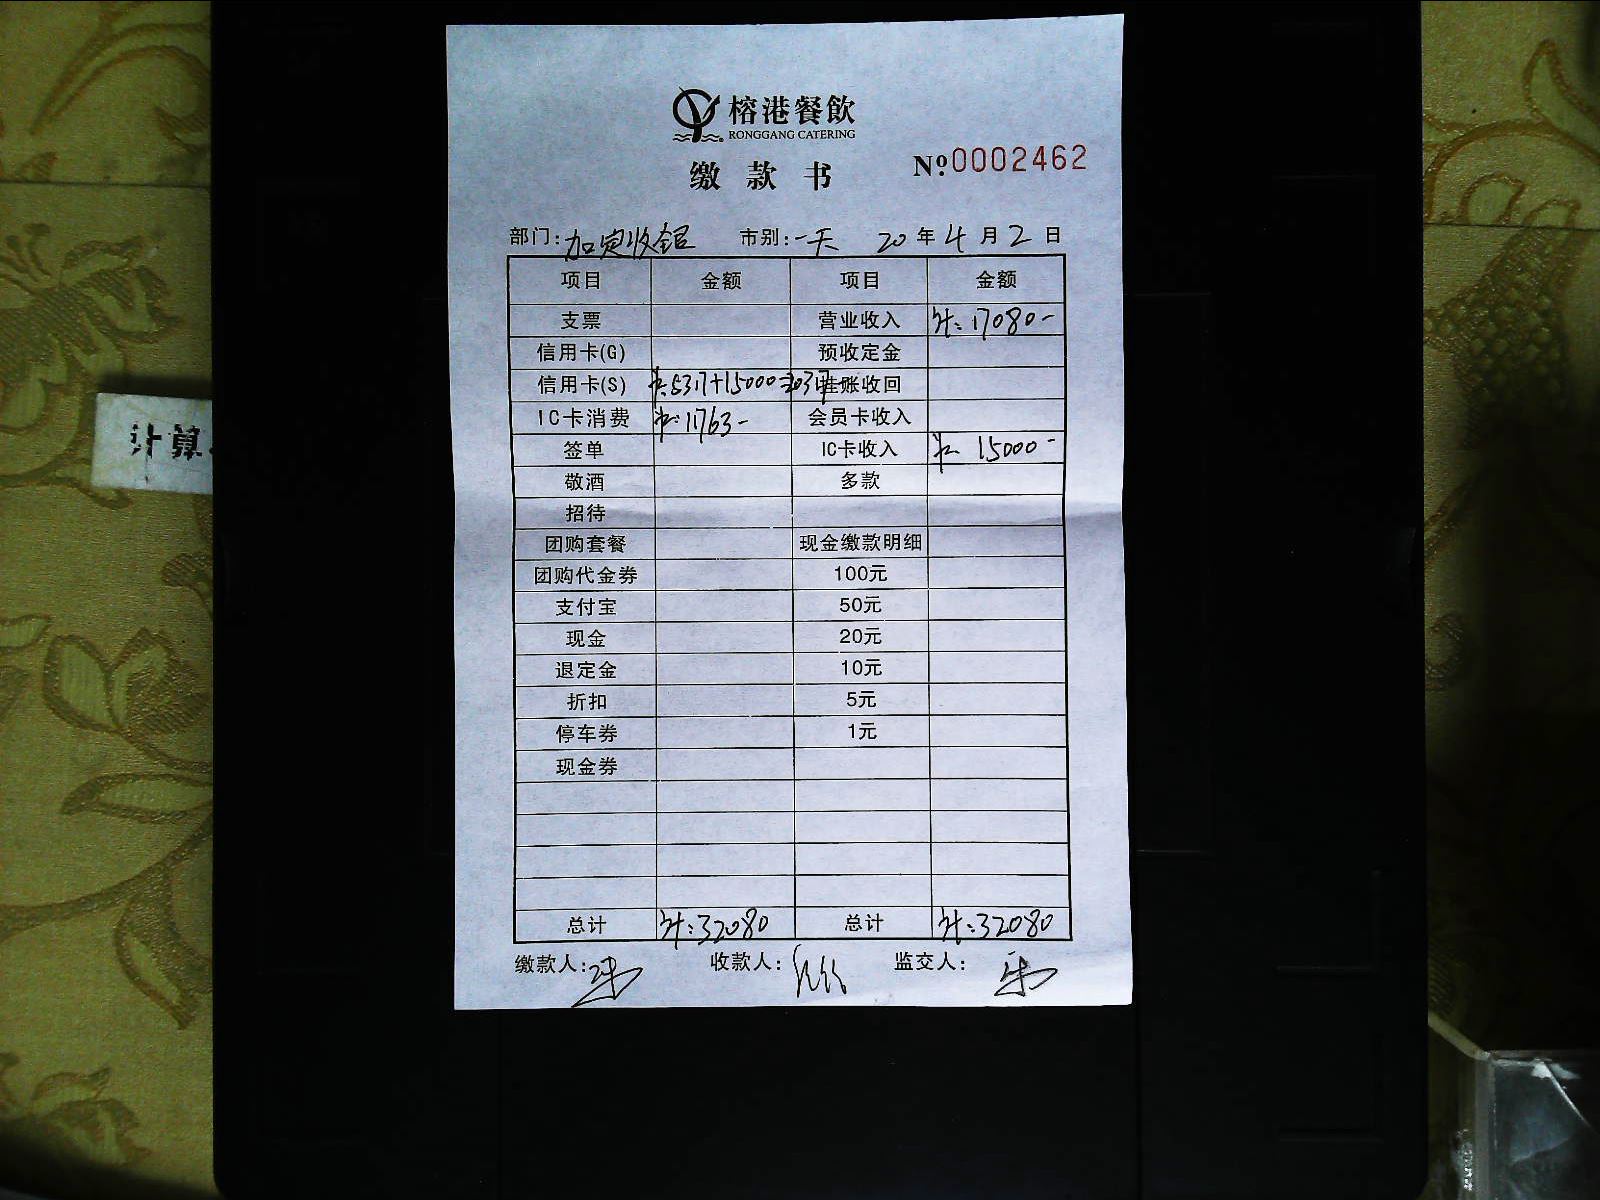 榕港餐飲
RONGGANG CATERING
缴款书 Nº:0002462
部门:加定收银 市别:一天 20年4月2日
项目 金额 项目 金额
支票 营业收入 计:17080-
信用卡(G) 预收定金
信用卡(S) 卡:5317+15000=20317 挂账收回
IC卡消费 卡:11763- 会员卡收入
签单 IC卡收入 卡 15000-
敬酒 多款
招待
团购套餐 现金缴款明细
团购代金券 100元
支付宝 50元
现金 20元
退定金 10元
折扣 5元
停车券 1元
现金券
总计 计:32080 总计 计:32080
缴款人: 收款人: 监交人:
计算